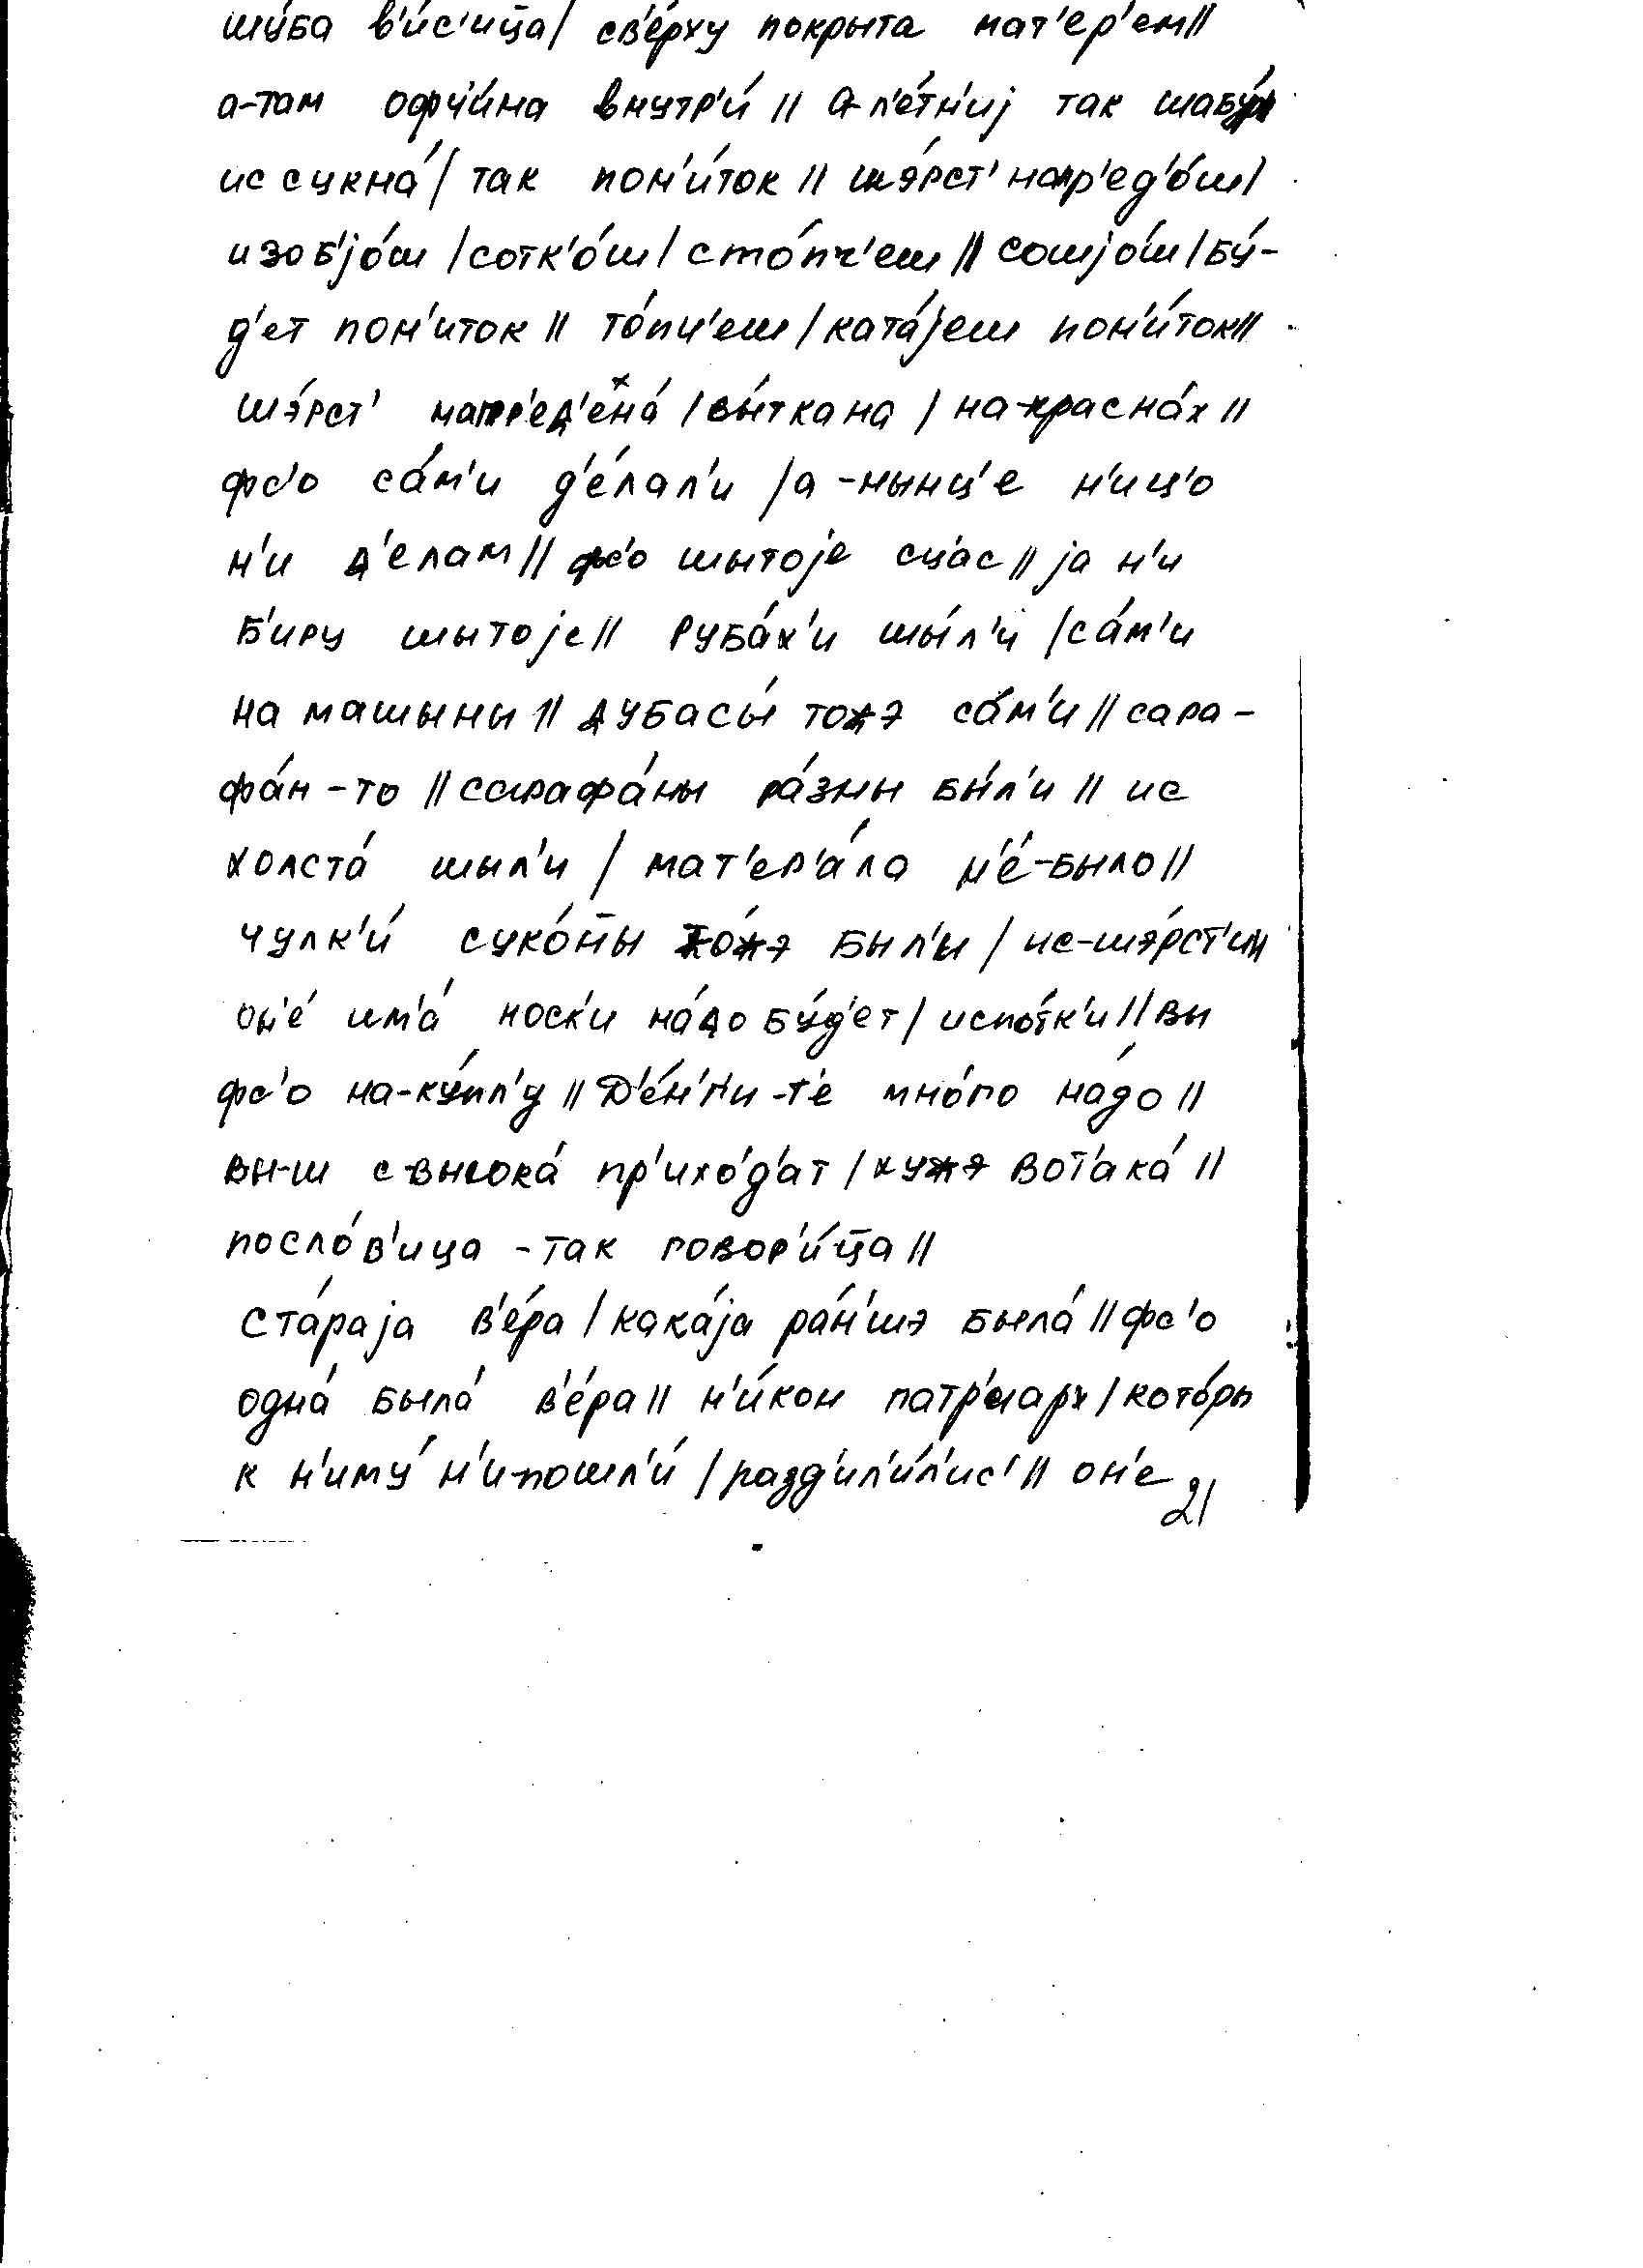 шу́ба в'и́с'ица̄/ св'е́рху покрыта мат'ер'ем//
а-там офч'и́на внутр'и́ // а л'е́тн'иj так шабу́р
ис сукна́ / так пон'и́ток // шэ́рст' напр'ед'о́ш/
изоб'jо́ш /сотк'о́ш/ сто́пч'еш // сошjо́ш /бу́-
д'ет пон'иток // то́пч'еш /ката́jеш пон'и́ток//
шэ́рст' напр'ед'ена́ /вы́ткана / на-красна́х //
фс'о са́м'и д'е́лал'и /а -нынц'е н'иц'о
н'и д'елам// фс'о шытоjе сц'ас // jа н'и
б'иру шытоjе// руба́х'и шы́л'и /са́м'и
на машыны // дубасы́ тожэ са́м'и // сара-
фа́н -то // сарафа́ны ра́зны бы́л'и // ис
холста́ шыл'и / мат'ер'а́ла н'е́-было//
чулк'и́ суко́н̄ы то́жэ был'и / ис-шэ́рст'ин
он'е́ им'а́ носк'и на́до бу́д'ет/ испо́тк'и// вы
фс'о на-ку́пл'у // Д'е́н'г'и -т'е мно́го на́до //
вы-ш с-высока́ пр'ихо́д'ат / хужэ вот'ака́ //
посло́в'ица -так говор'и́ца̄ //
ста́раjа в'е́ра / кака́jа ра́н'шэ была́ // фс'о
одна́ была́ в'е́ра// н'и́кон патр'иарх / кото́ры
к н'иму́ н'и-пошл'и́ / разд'ил'и́л'ис' // он'е
21